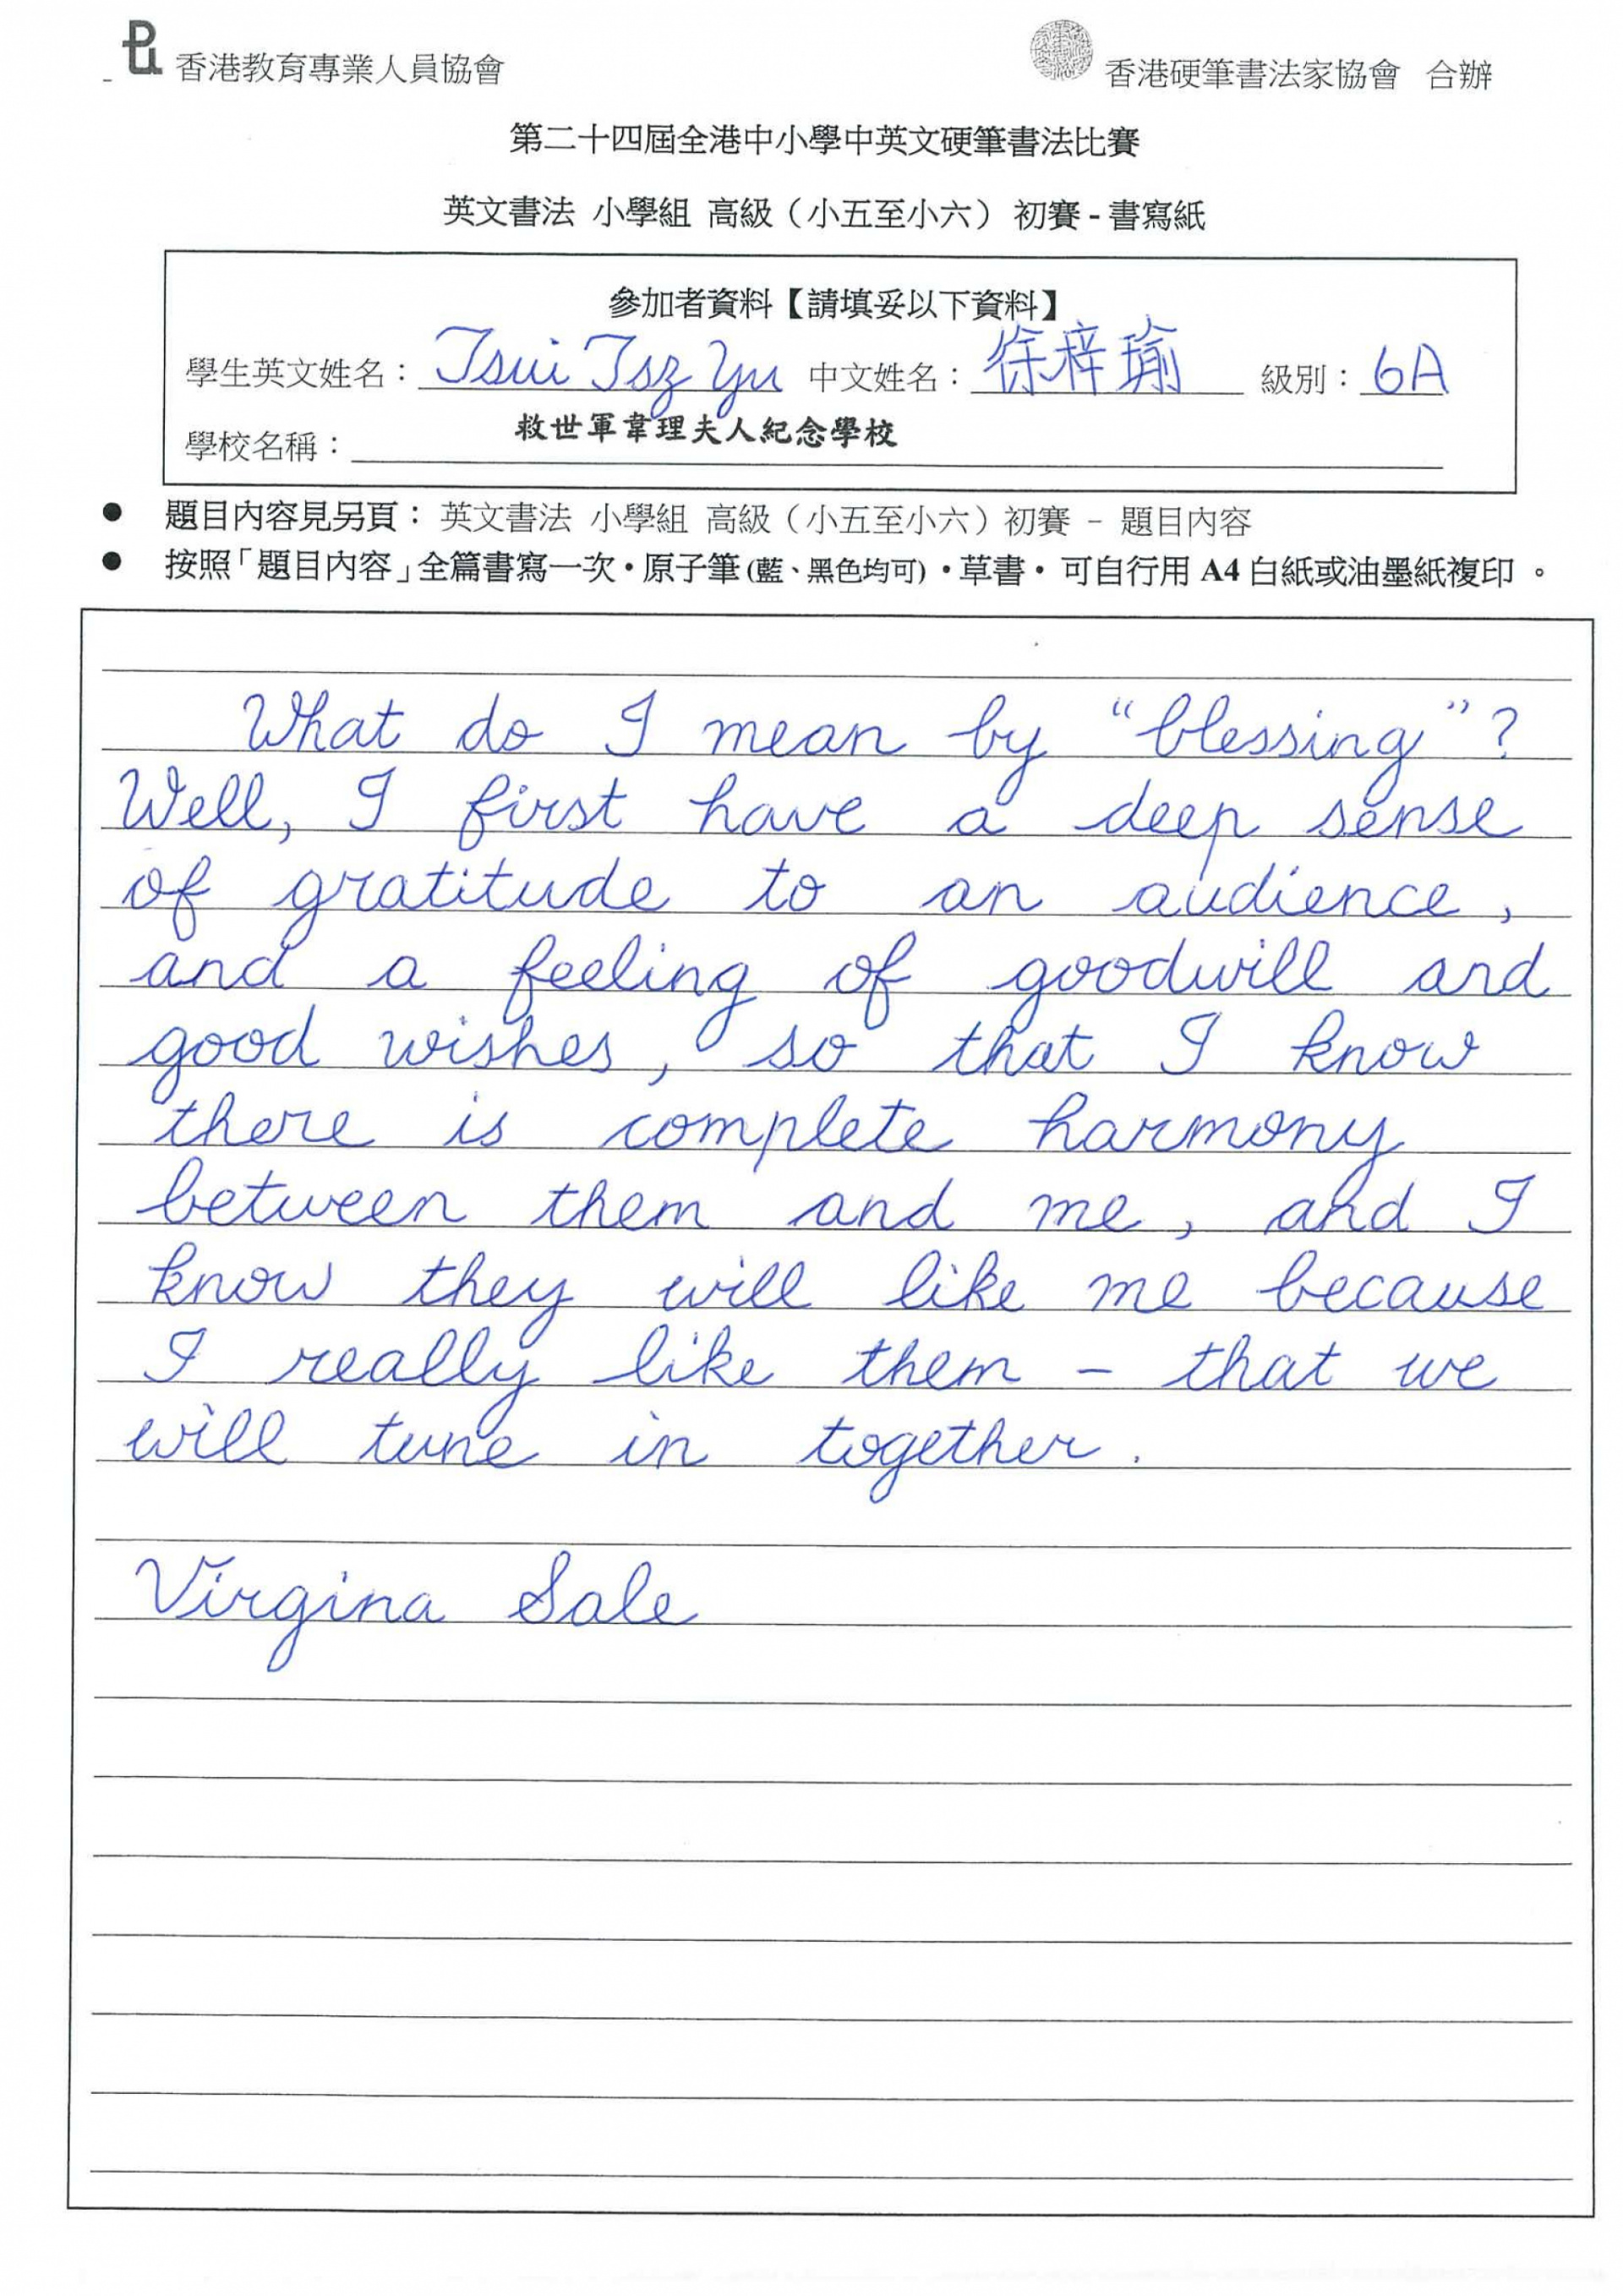 香港教育專業人員協會
香港硬筆書法家協會 合辦
第二十四屆全港中小學中英文硬筆書法比賽
英文書法 小學組 高級（小五至小六） 初賽 - 書寫紙
參加者資料【請填妥以下資料】
學生英文姓名： Tsui Tsz Yu 中文姓名： 徐梓瑜 級別： 6A
學校名稱： 救世軍韋理夫人紀念學校
● 題目內容見另頁： 英文書法 小學組 高級（小五至小六）初賽 － 題目內容
● 按照「題目內容」全篇書寫一次・原子筆(藍、黑色均可)・草書・ 可自行用 A4 白紙或油墨紙複印 。
What do I mean by "blessing"?
Well, I first have a deep sense
of gratitude to an audience,
and a feeling of goodwill and
good wishes, so that I know
there is complete harmony
between them and me, and I
know they will like me because
I really like them - that we
will tune in together.
Virgina Sale